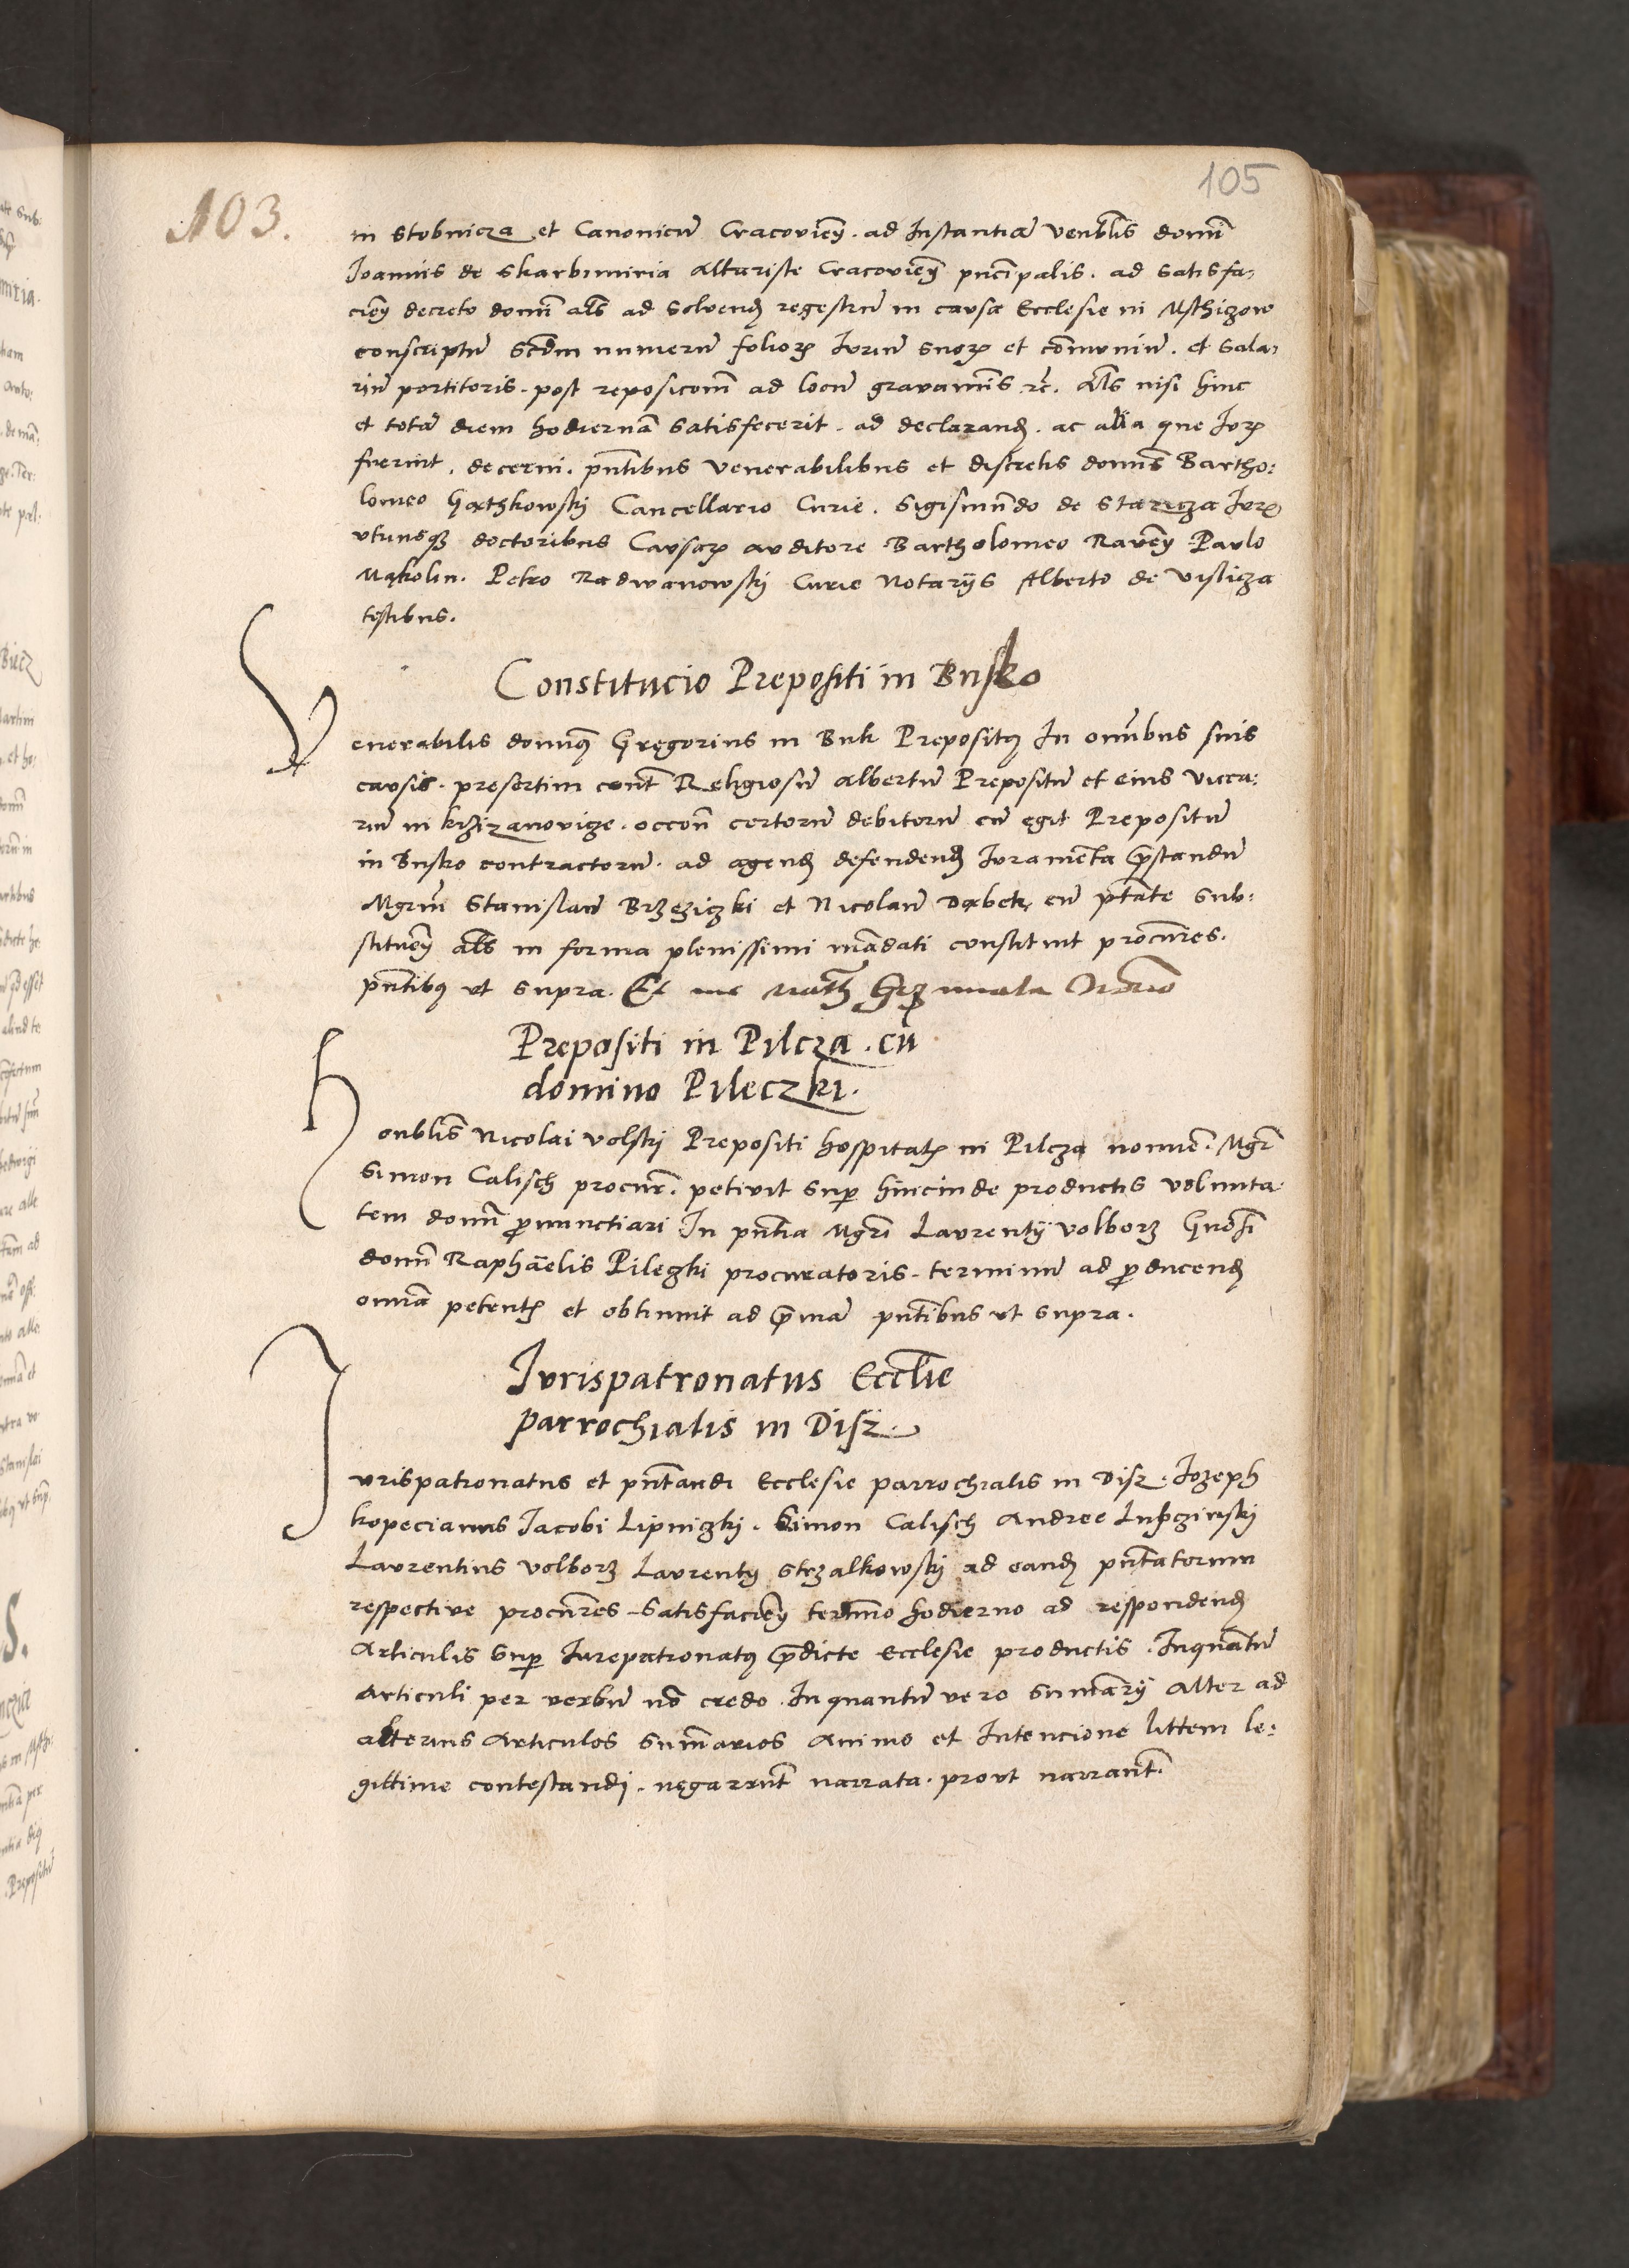 103.
105
in Stobnicza et Canonicũ Cracovieñ. ad Instantiã Venblis domĩ
Joannis de Skarbimiria Altariste Cracovieñ pncipalis. ad satisfa,
cieñ decreto domĩ als ad solvend regestrũ in causa Ecclesie in Msthigow
conscriptũ scdm numerũ folioꝝ Iuriũ suoꝝ et cõmuniũ. et sala,
riũ portitoris. post reposicoñ ad locũ gravamĩs rc. Als nisi hinc
et totã diem hodiernã satisfecerit. ad declarand. ac alia que Juꝝ
fuerint. decerni. pntibus Venerabilibus et discretis domĩs Bartho:
lomeo Gąthkowskÿ Cancellario Curie. Sigismũdo de Starigza Juꝝ
utriusqꝫ doctoribus Causaꝝ auditore Bartholomeo Raveñ Paulo
Mąkolin. Petro Radwanowskÿ Curie Notarÿs Alberto de Visligza
testibus.
Constitucio Prepositi in Busko
Venerabilis domnꝰ Gręgorius in Buk Prepositꝰ In omĩbus suis
causis. presertim cont Religiosũ Albertũ Prepositũ et eius Vica:
riũ in krzizanovigze. occoñ certorũ debitorũ cũ egit Prepositũ
in Busko contractorũ. ad agend defendend Juramẽta p̃standũ
Mgrm̃ Stanislaũ Brzęzigzki et Nicolaũ Dąbek, cũ ptate sub:
stitueñ als in forma plenissimi mãdati constituit procures.
pntibꝰ ut supra. Et
Prepositi in Pilcza. cũ
domino Pileczki.
Honblis Nicolai Volskÿ Prepositi hospitaꝝ in Pilcza nomiẽ. Mgr
Simon Calisch procur. petivit sup hincinde productis volunta
tem domĩ pnunctiari In pntia Mgrĩ Laurentÿ Volborz Gnosi
domĩ Raphãelis Pilegki procuratoris. terminũ ad pducend
omnia petenꝝ et obtinuit ad p̃mã pntibus ut supra.
Jurispatronatus Ecclie
parrochialis in Disz.
Jurispatronatus et pntandi Ecclesie parrochialis in Disz. Jozeph
kopecianus Jacobi Lipnigzkj. Simon Calisch Andree Lupczinskÿ
Laurentius Volborz Laurentÿ Strzalkowskÿ ad eand pntatorum
respective procures. satisfacieñ termĩo hodierno ad respondend
Articulis sup Jurepatronatꝰ p̃dicte Ecclesie productis. Inquãtũ
Articuli per verbũ nõ credo. Inquantũ vero sum̃arÿ Alter ad
alterius Articulos sum̃arios Animo et Intencione littem le:
gittime contestandj. nęgarũt narrata. prout narrant.